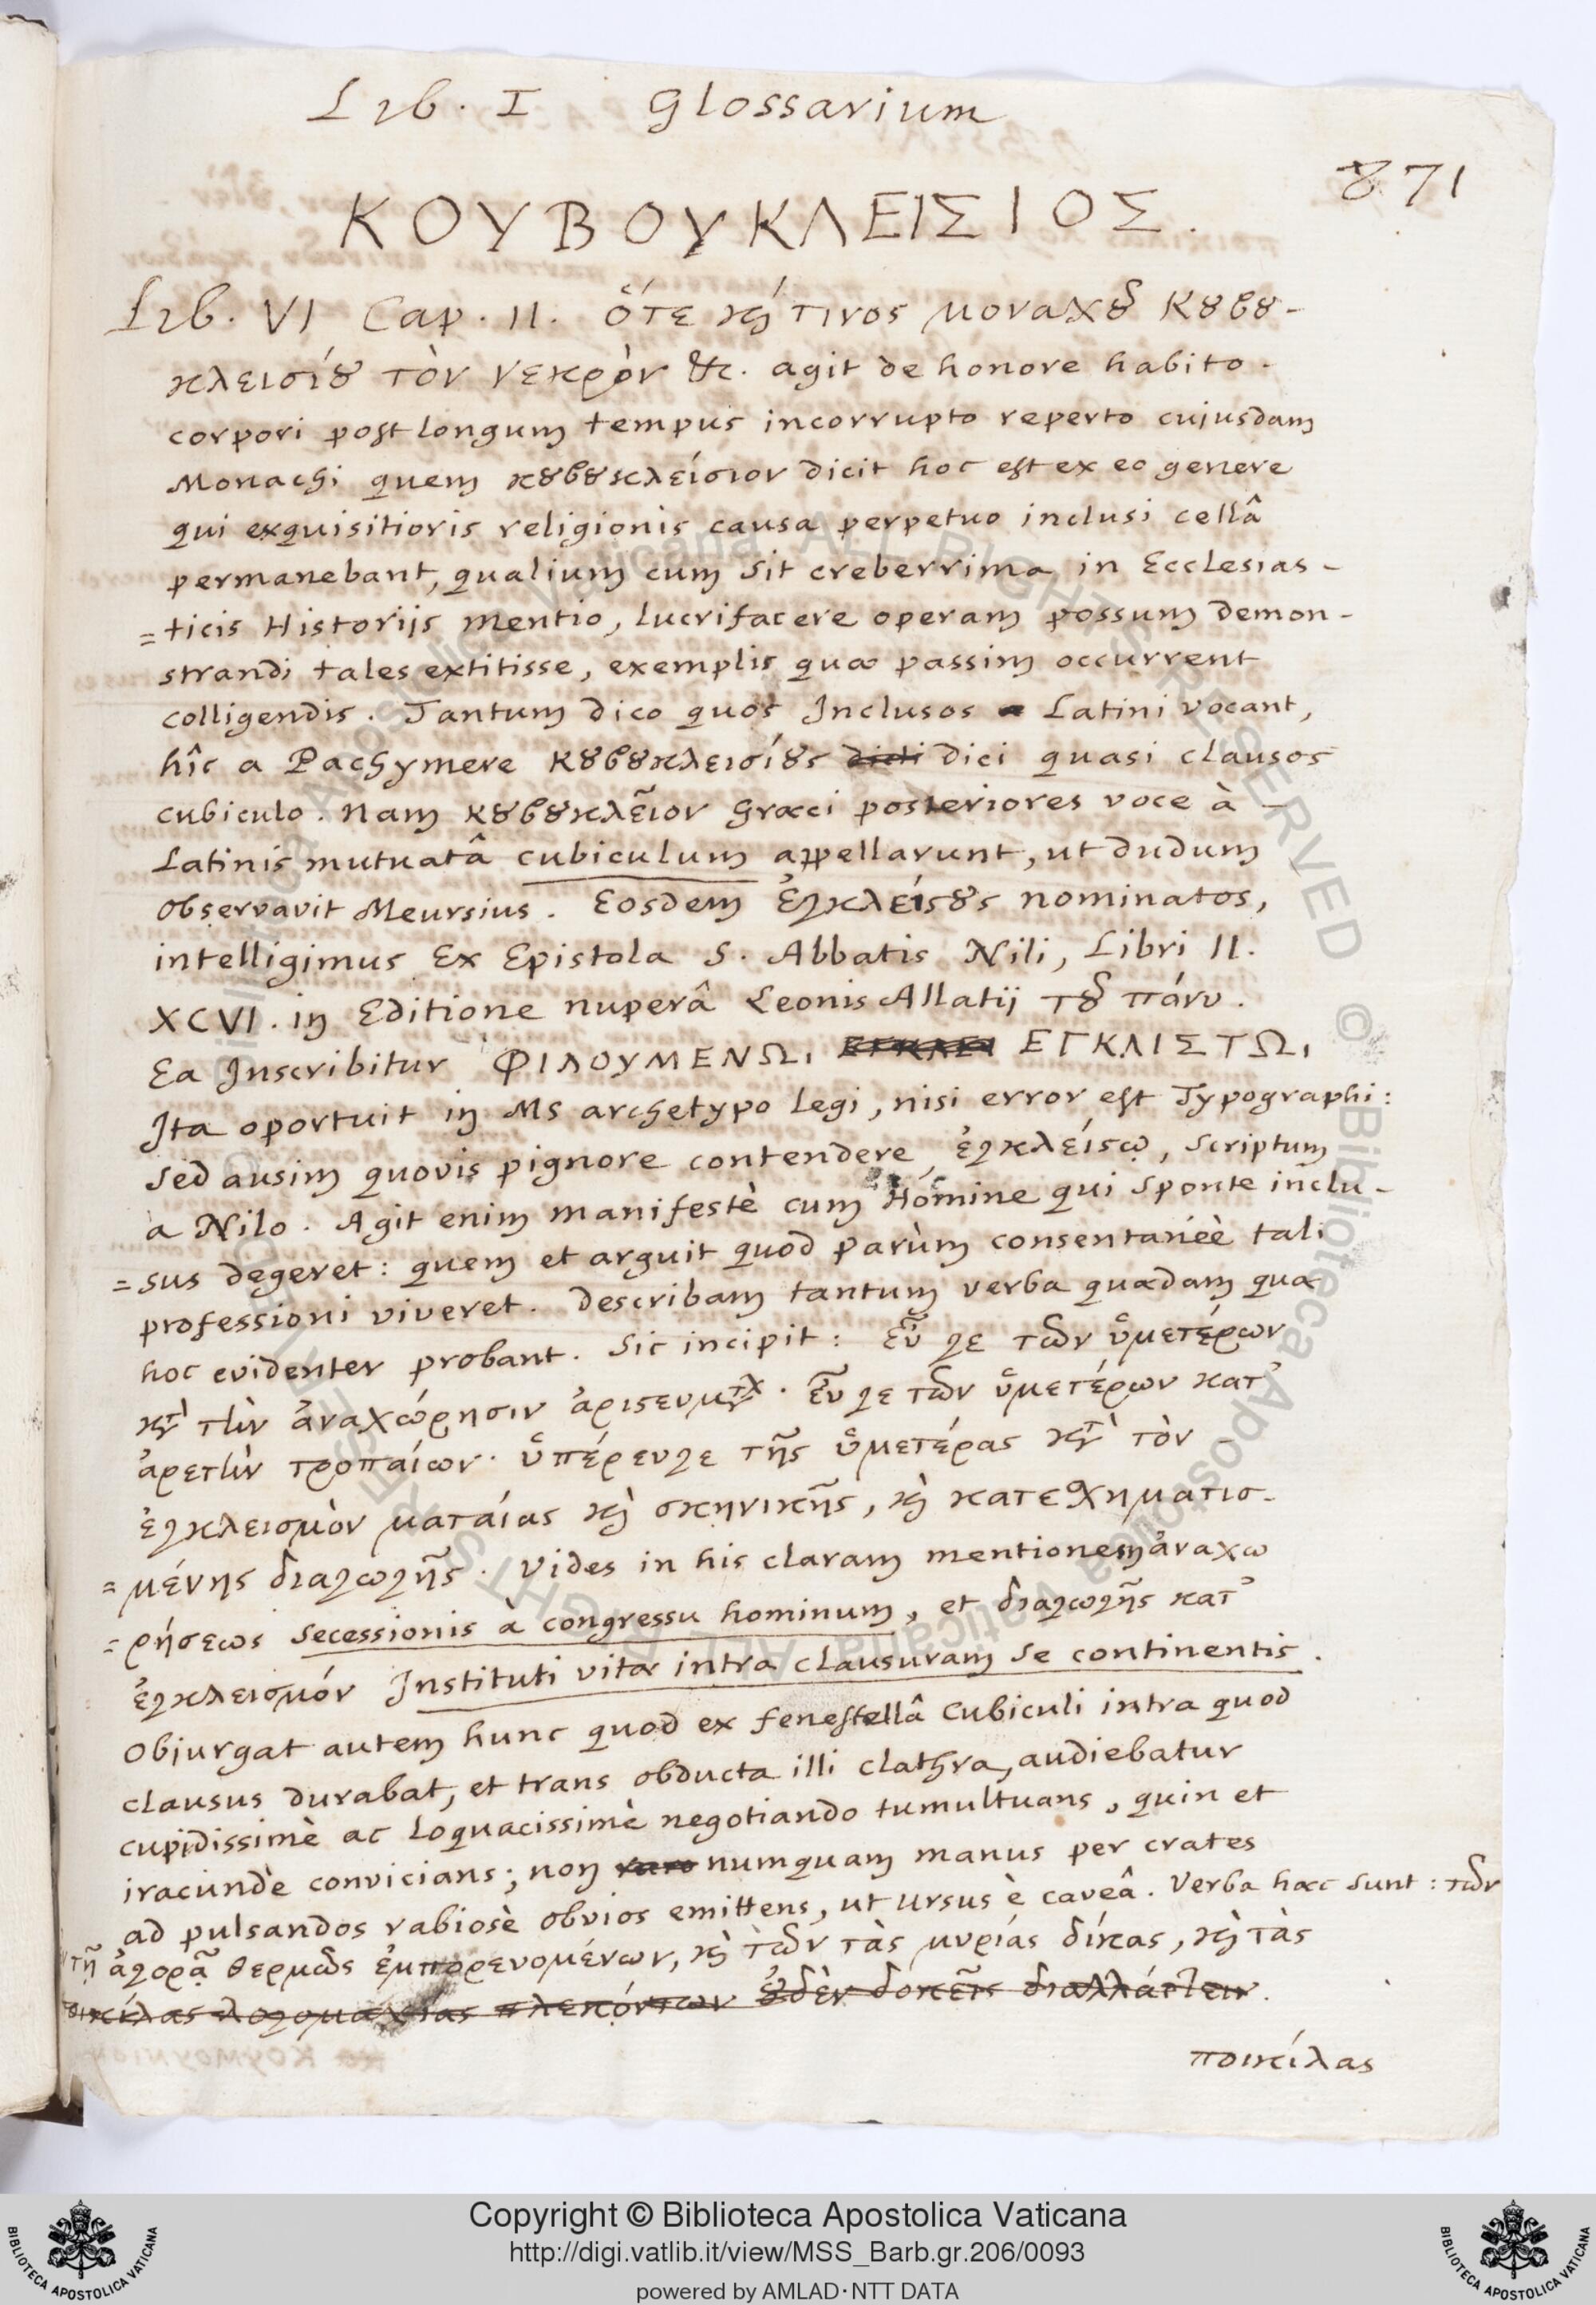 Lib. I Glossarium
871
ΚΟΥΒΟΥΚΛΕΙΣΙΟΣ.
Lib. VI Cap. II. ὅτε καί τινος μοναχοῦ Κουβου-
κλεισίου τὸν νεκρὸν &c. agit de honore habito
corpori post longum tempus incorrupto reperto cujusdam
Monachi quem κουβουκλείσιον dicit hoc est ex eo genere
qui exquisitioris religionis causa perpetuo inclusi cellâ
permanebant, qualium cum sit creberrima in Ecclesias-
=ticis Historijs mentio, lucrifacere operam possum demon-
strandi tales extitisse, exemplis quæ passim occurrent
colligendis. Tantum dico quos Inclusos Latini vocant,
hîc a Pachymere κουβουκλεισίους dicti dici quasi clausos
cubiculo. Nam κουβουκλεῖον Græci posteriores voce à
Latinis mutuatâ cubiculum appellarunt, ut dudum
observavit Meursius. Eosdem ἐγκλείστους nominatos,
intelligimus Ex Epistola S. Abbatis Nili, Libri II.
XCVI. in Editione nuperâ Leonis Allatij τοῦ πάνυ.
Ea Inscribitur ΦΙΛΟΥΜΕΝΩΙ ΕΓΚΛΕΙ ΕΓΚΛΙΣΤΩΙ
Ita oportuit in Ms archetypo legi, nisi error est Typographi:
sed ausim quovis pignore contendere ἐγκλείστῳ, scriptum
a Nilo. Agit enim manifestè cum Homine qui sponte inclu-
=sus degeret: quem et arguit quod parùm consentaneè tali
professioni viveret. Describam tantum verba quædam quæ
hoc evidenter probant. Sic incipit: εὖ γε τῶν ὑμετέρων
κατὰ τὴν ἀναχώρησιν ἀριστευμάτων. εὖ γε τῶν ὑμετέρων κατ'
ἀρετὴν τροπαίων. ὑπέρευγε τῆς ὑμετέρας κατὰ τὸν
ἐγκλεισμὸν ματαίας καὶ σκηνικῆς, καὶ κατεσχηματισ-
=μένης διαγωγῆς. Vides in his claram mentionem ἀναχω
=ρήσεως secessionis à congressu hominum, et διαγωγῆς κατ'
ἐγκλεισμόν Instituti vitæ intra clausuram se continentis.
Objurgat autem hunc quod ex fenestellâ Cubiculi intra quod
clausus durabat, et trans obducta illi clathra, audiebatur
cupidissimè ac loquacissimè negotiando tumultuans, quin et
iracundè convicians; non raro numquam manus per crates
ad pulsandos rabiosè obvios emittens, ut ursus è caveâ. Verba hæc sunt: τῶν
"τῇ ἀγορᾷ θερμῶς ἐμπορευομένων, καὶ τῶν τὰς μυρίας δίκας, καὶ τὰς
ποικίλας λογομαχίας πλεκόντων οὐδὲν δοκεῖς διαλλάττειν.
ποικίλας
Copyright © Biblioteca Apostolica Vaticana
http://digi.vatlib.it/view/MSS_Barb.gr.206/0093
powered by AMLAD·NTT DATA
BIBLIOTECA APOSTOLICA VATICANA
BIBLIOTECA APOSTOLICA VATICANA